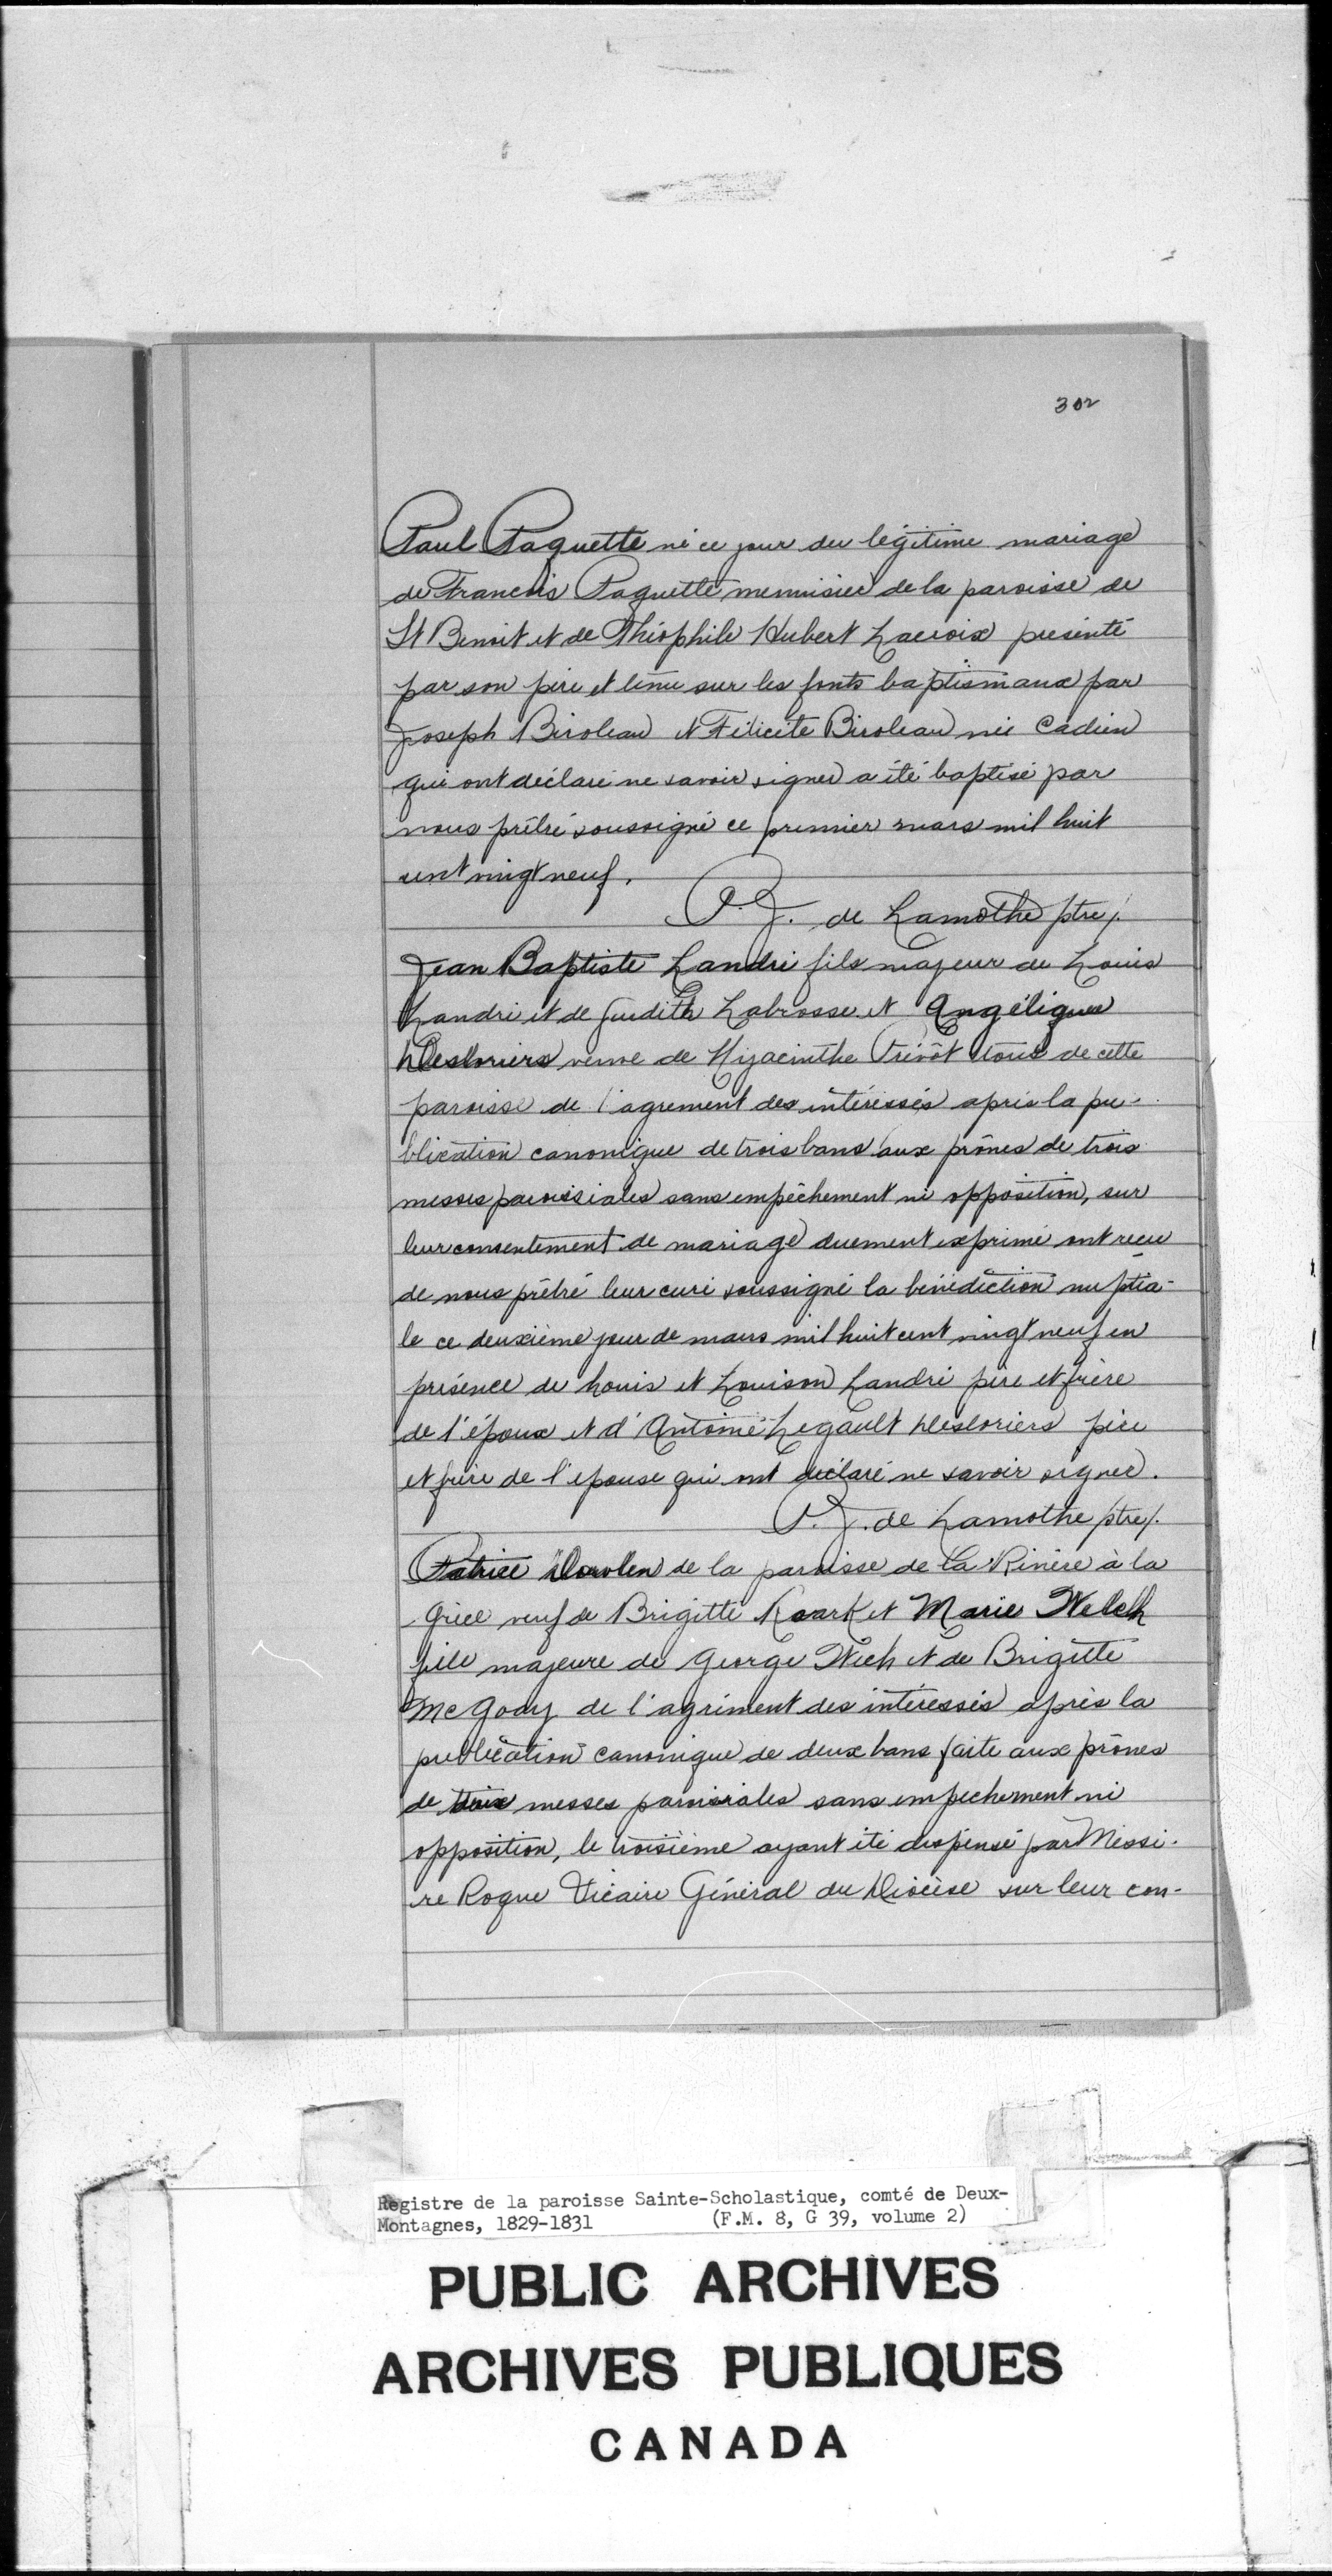 302
Paul Paquette né ce jour du légitime mariage
de Francois Paquette menuisier de la paroisse de
St Benoit et de Théophile Hubert Lacroix présenté
par son père et tenu sur les fonts baptismaux par
Joseph Biroleau et Félicité Biroleau née Cadieu
qui ont déclaré ne savoir signer a été baptisé par
nous prêtre soussigné ce premier mars mil huit
cent vingt neuf.
P. J. de Lamothe ptre/.
Jean Baptiste Landri fils majeur de Louis
Landri et de Judith Labrosse et Angélique
Desloriers veuve de Hyacinthe Prévôt tous de cette
paroisse de l'agrement des intéressés après la pu-
blication canonique de trois bans aux prônes de trois
messes paroissiales sans empêchement ni opposition, sur
leur consentement de mariage duement exprimé ont recu
de nous prêtre leur curé soussigné la bénédiction nuptia-
le ce deuxième jour de mars mil huit cent vingt neuf en
présence de Louis et Louison Landri père et frère
de l'époux et d'Antoine Legault Desloriers père
et frère de l'epouse qui ont déclaré ne savoir signer.
P. J. de Lamothe ptre/.
Patrice de la paroisse de La Rivière à la
Grice veuf de Brigitte Roark et Marie Welch
fille majeure de George Wech et de Brigitte
McGody de l'agrément des intéressés après la
publication canonique de deux bans faite aux prônes
de messes paroissiales sans empechement ni
opposition, le troisième ayant été dispensé par Messi-
re Roque Vicaire Général du Diocèse sur leur con-
Registre de la paroisse Sainte-Scholastique, comté de Deux-
Montagnes, 1829-1831 (F.M. 8, G 39, volume 2)
PUBLIC ARCHIVES
ARCHIVES PUBLIQUES
CANADA